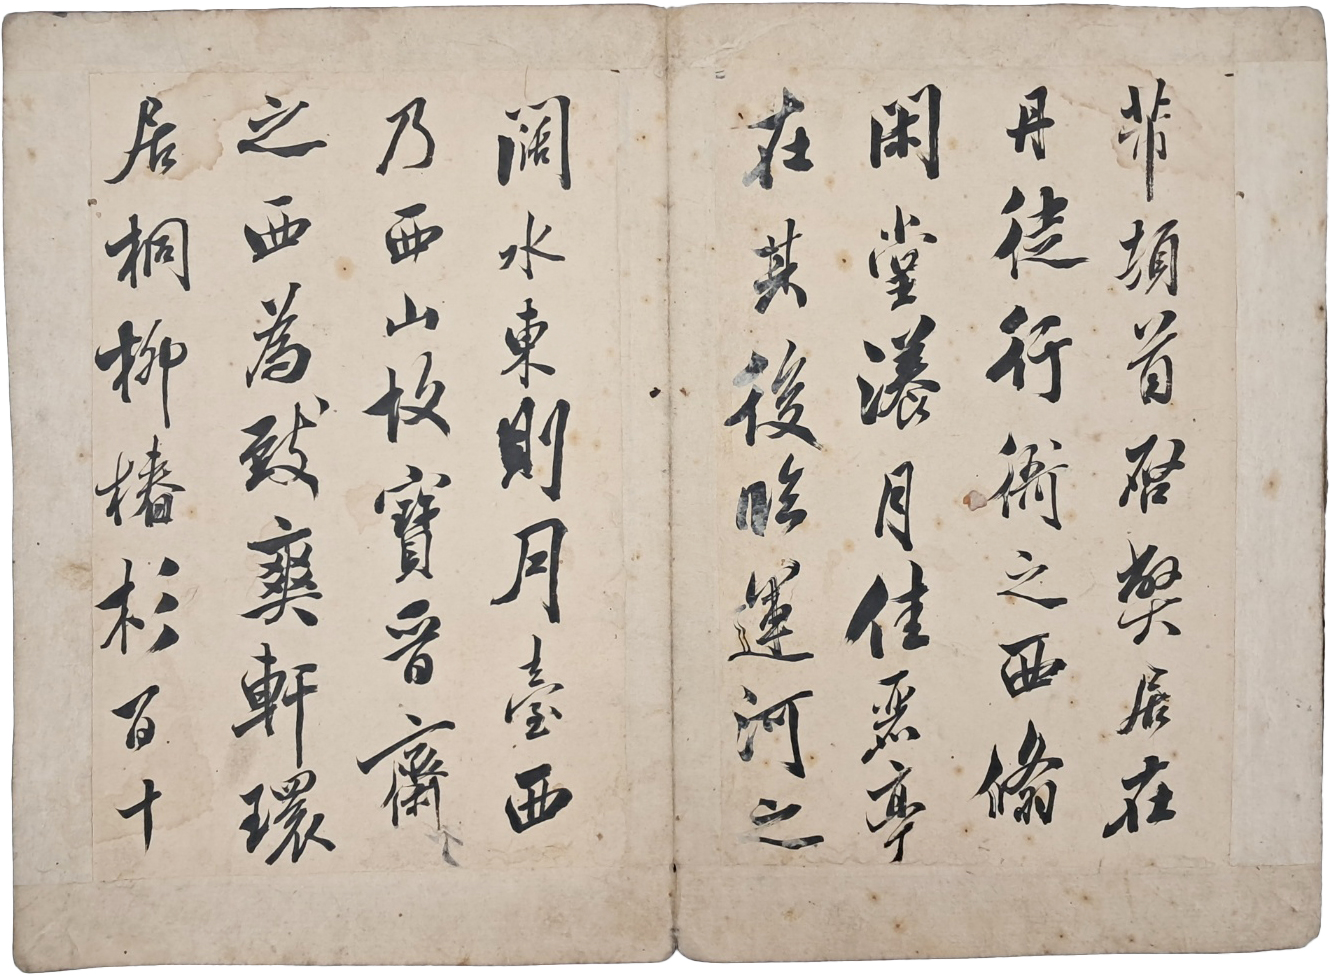 芾頓首啓弊居在
丹徒行衙之西翛
閑堂漾月佳麗亭
在其後臨運河之
闊水東則月臺西
乃西山故寶晉齋
之西為致爽軒環
居桐柳椿杉百十